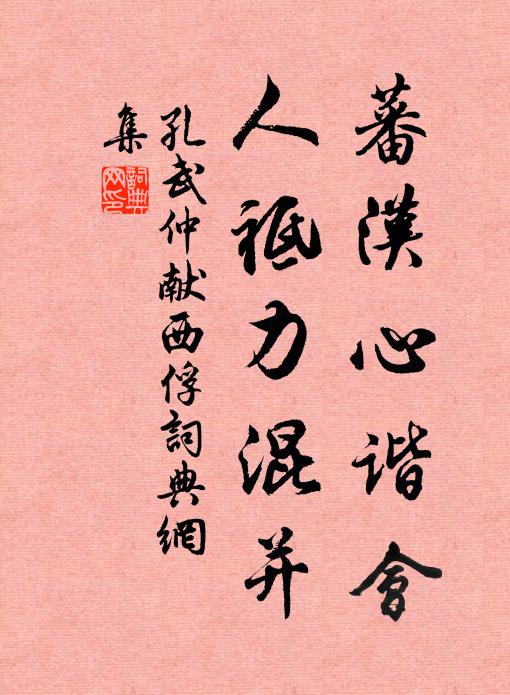 蕃漢心谐會
人祗力混并
孔武仲献西俘詞典網
集
詞典
网印